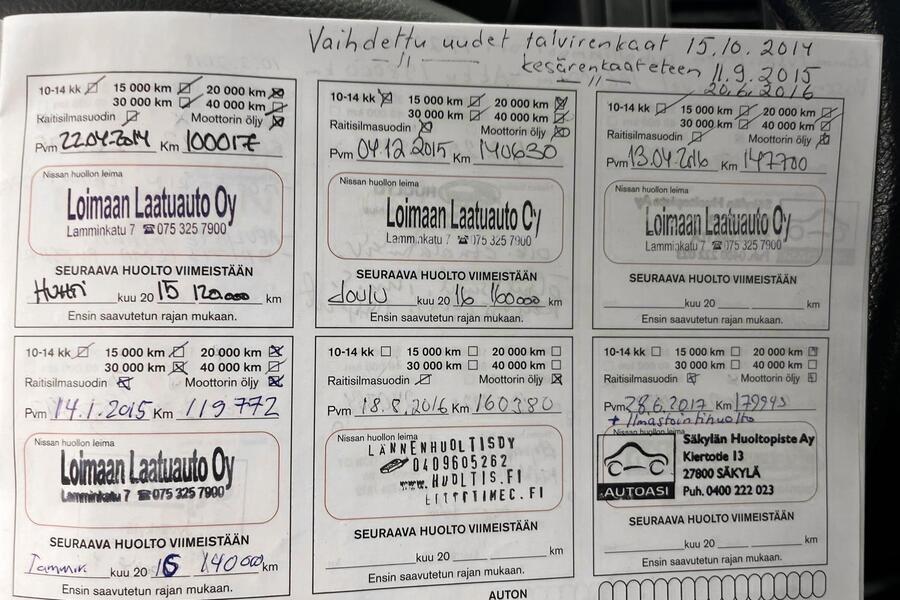 Vaihdettu uudet talvirenkaat 15.10.2014
—11— kesärenkaat eteen 11.9.2015
—11— 20.6.2016
10-14 kk 15 000 km 20 000 km
30 000 km 40 000 km
Raitisilmasuodin Moottorin öljy
Pvm 22.04.2014 Km 100017
Nissan huollon leima
Loimaan Laatuauto Oy
Lamminkatu 7 ☎ 075 325 7900
SEURAAVA HUOLTO VIIMEISTÄÄN
HUHTI kuu 20 15 120.000 km
Ensin saavutetun rajan mukaan.
10-14 kk 15 000 km 20 000 km
30 000 km 40 000 km
Raitisilmasuodin Moottorin öljy
Pvm 04.12 2015 Km 140630
Nissan huollon leima
Loimaan Laatuauto Oy
Lamminkatu 7 ☎ 075 325 7900
SEURAAVA HUOLTO VIIMEISTÄÄN
JOULU kuu 20 16 160000 km
Ensin saavutetun rajan mukaan.
10-14 kk 15 000 km 20 000 km
30 000 km 40 000 km
Raitisilmasuodin Moottorin öljy
Pvm 13.04.2016 Km 147700
Nissan huollon leima
Loimaan Laatuauto Oy
Lamminkatu 7 ☎ 075 325 7900
SEURAAVA HUOLTO VIIMEISTÄÄN
kuu 20 km
Ensin saavutetun rajan mukaan.
10-14 kk 15 000 km 20 000 km
30 000 km 40 000 km
Raitisilmasuodin Moottorin öljy
Pvm 14.1.2015 Km 119772
Nissan huollon leima
Loimaan Laatuauto Oy
Lamminkatu 7 ☎ 075 325 7900
SEURAAVA HUOLTO VIIMEISTÄÄN
Tammik. kuu 20 16 140000 km
Ensin saavutetun rajan mukaan.
10-14 kk 15 000 km 20 000 km
30 000 km 40 000 km
Raitisilmasuodin Moottorin öljy
Pvm 18.8.2016 Km 160380
Nissan huollon leima
LÄNNENHUOLTISOY
0409605262
www.HUOLTIS.FI
SEURAAVA HUOLTO VIIMEISTÄÄN
kuu 20 km
Ensin saavutetun rajan mukaan.
10-14 kk 15 000 km 20 000 km
30 000 km 40 000 km
Raitisilmasuodin Moottorin öljy
Pvm 28.6.2017 Km 179945
+ Ilmastointihuolto
Nissan huollon leima
AUTOASI
Säkylän Huoltopiste Ay
Kiertotie 13
27800 SÄKYLÄ
Puh. 0400 222 023
SEURAAVA HUOLTO VIIMEISTÄÄN
kuu 20 km
Ensin saavutetun rajan mukaan.
AUTON